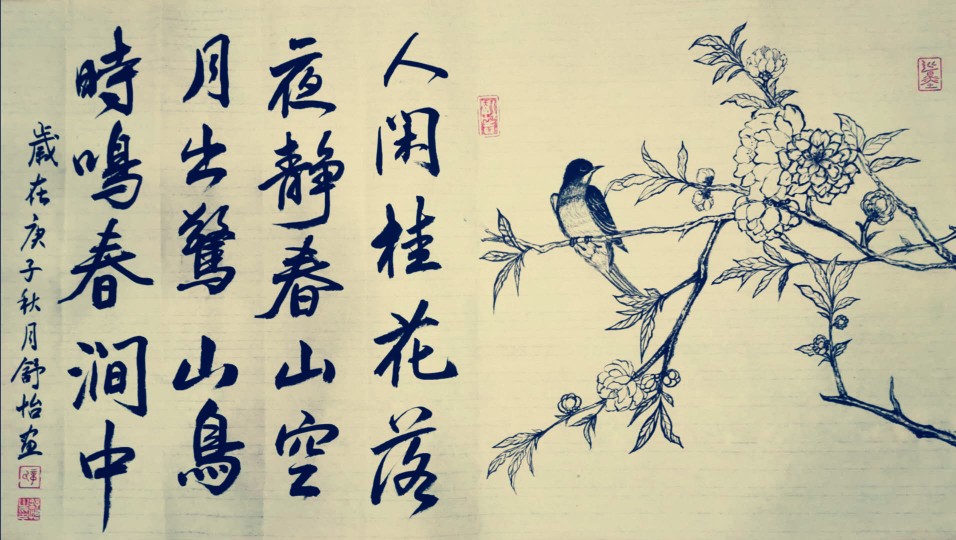 人闲桂花落
夜静春山空
月出驚山鳥
時鳴春澗中
歲在庚子秋月舒怡畫